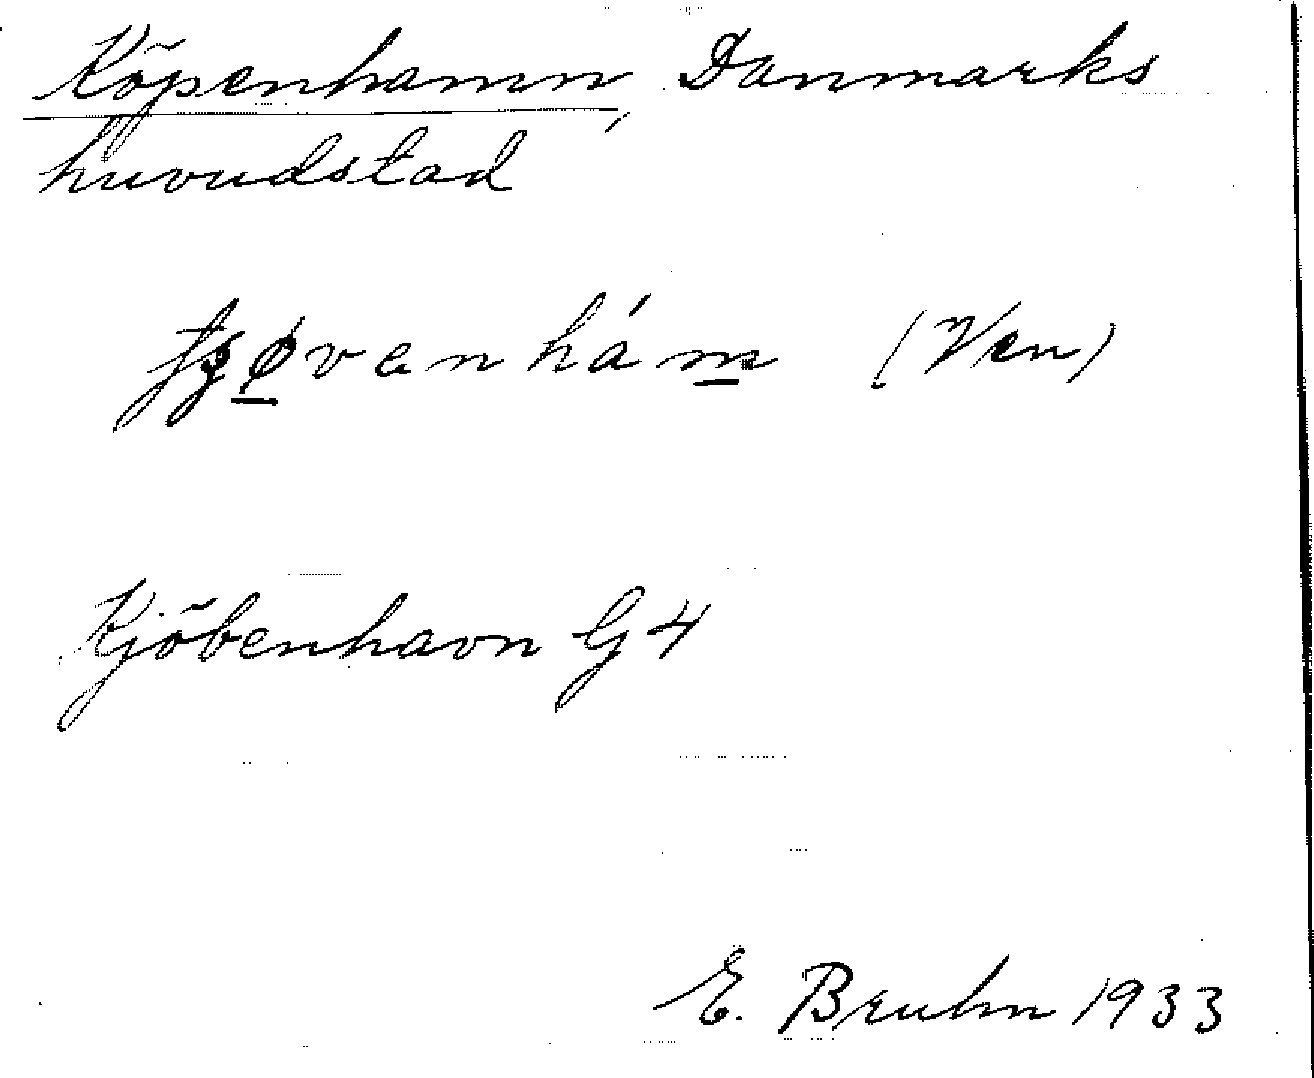 Köpenhamn, Danmarks
huvudstad
(Ven)
Kjöbenhavn G 4
E. Bruhn 1933